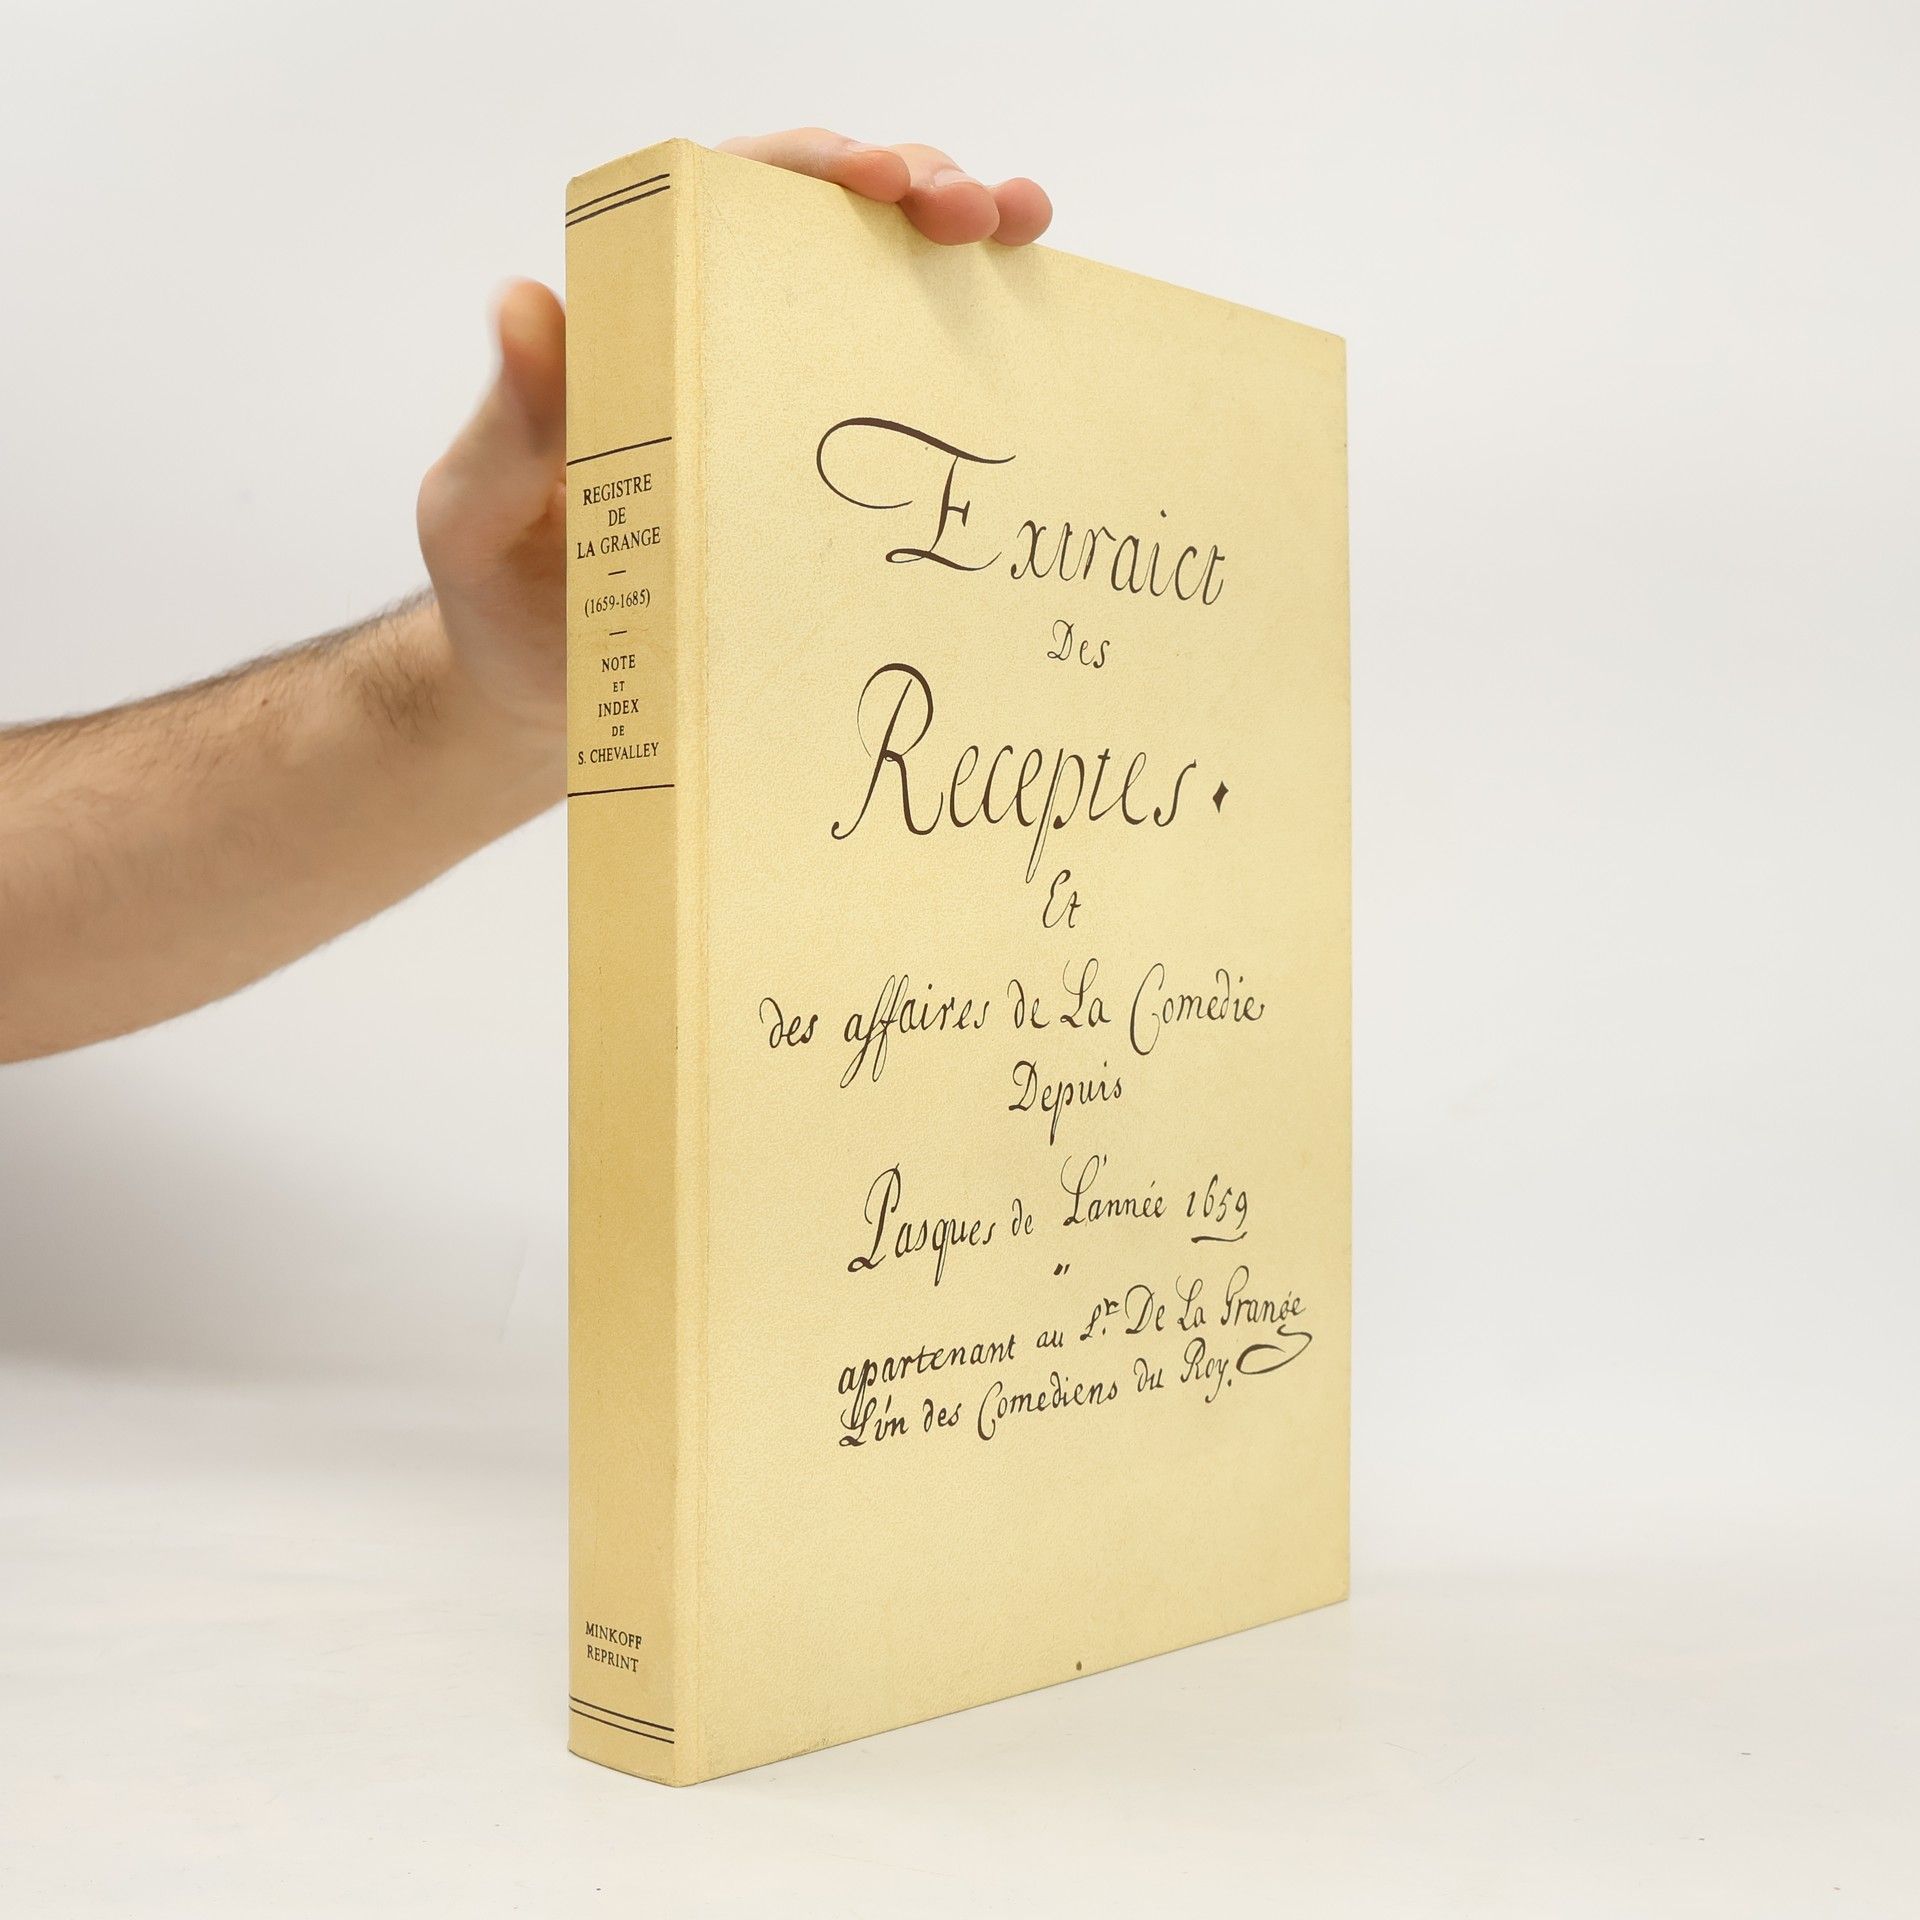 REGISTRE
DE
LA GRANGE
(1659-1685)
NOTE
ET
INDEX
DE
S. CHEVALLEY
MINKOFF
REPRINT
Extraict
Des
Receptes.
Et
des affaires de La Comedie
Depuis
Pasques de L'année 1659
"
apartenant au Sr. De La Grange
L'vn des Comediens du Roy.